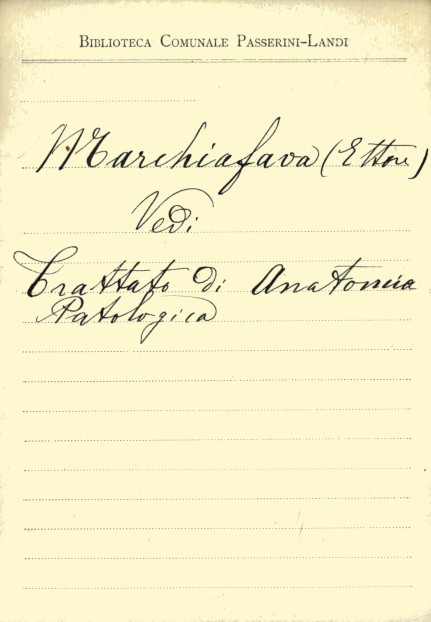 Biblioteca Comunale Passerini-Landi
Marchiafava (Ettore)
Vedi
Trattato di Anatomia
Patologica